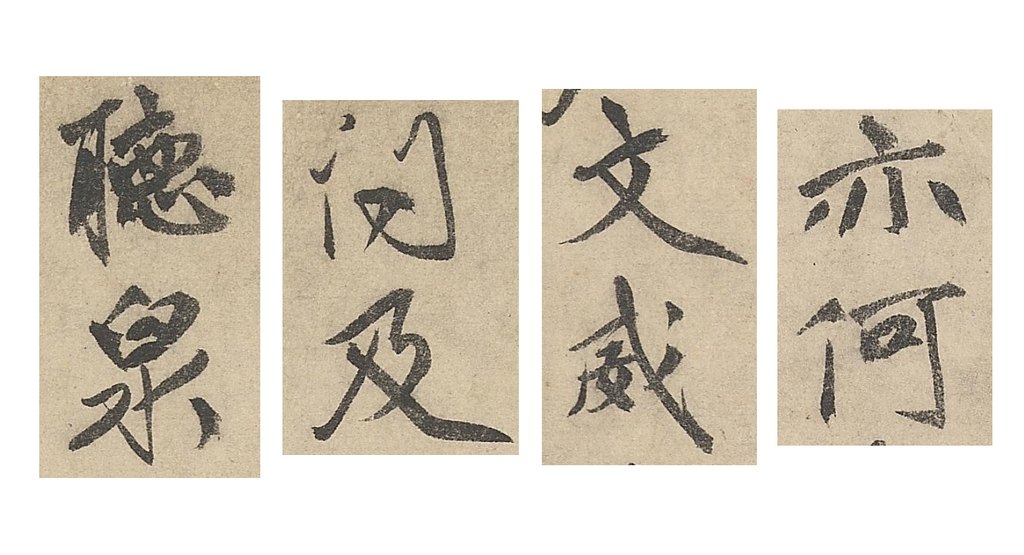 亦何
文威
问及
聽泉